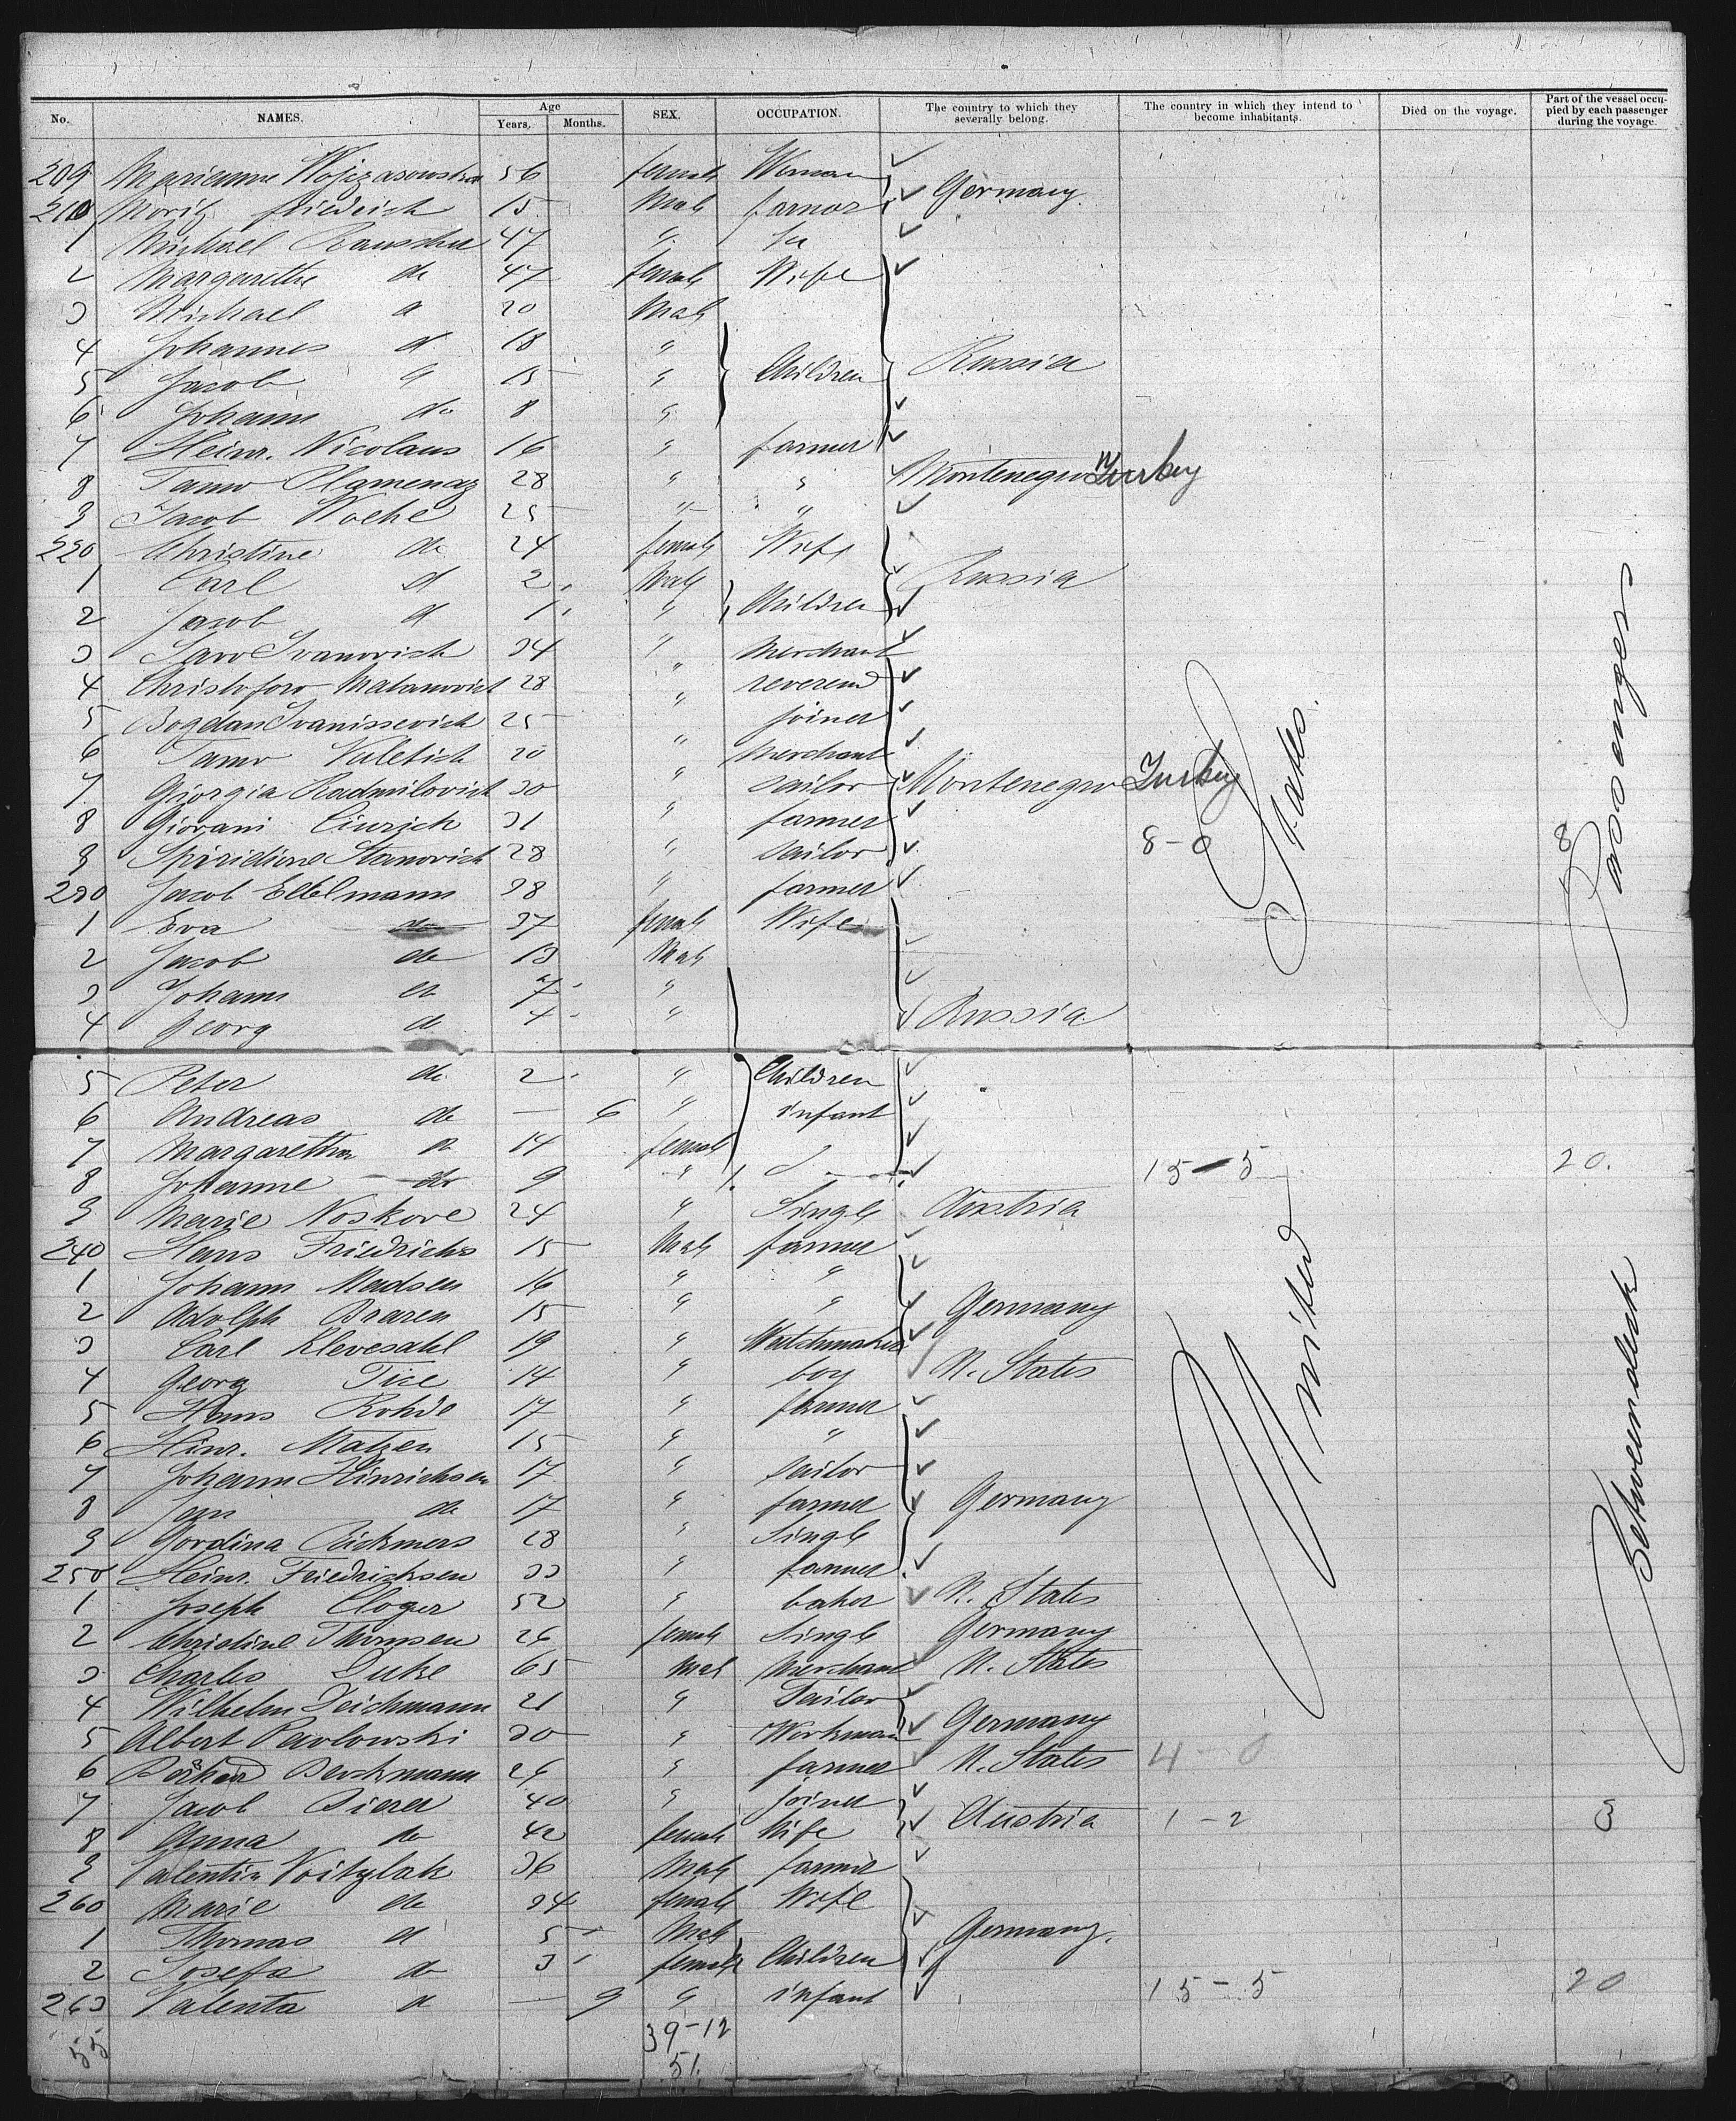 No. NAMES. Age Years. Months. SEX. OCCUPATION. The country to which they severally belong. The country in which they intend to become inhabitants. Died on the voyage. Part of the vessel occupied by each passenger during the voyage.
209 Marianne 56 female Woman
210 Moritz Friedrich 15 Male farmer Germany.
1 Michael Rauscher 47 " do
2 Margarethe do 47 female Wife
3 Michael d 20 Male
4 Johannes d 18 "
5 Jacob d 15 " Children Russia
6 Johann do 8 "
7 Heinr. Nicolaus 16 " farmer
8 Tamo Plamenaz 28 " " Montenegro Turkey
9 Jacob Woehe 25 " "
220 Christine do 24 female Wife
1 Carl d 2 Male Russia
2 Jacob d 1 " Children
3 Savo Ivanovich 34 " Merchant
4 Christoforo Matanovich 28 " reverend
5 Bogdan Ivanissevich 25 " joiner
6 Tamo Vuletich 20 " Merchant
7 Giorgia Radmilovich 30 " sailor Montenegro Turkey
8 Giovani 31 " farmer 8-0 8
9 Spiridione Stanovich 28 " sailor
230 Jacob Ellelmann 38 " farmer
1 Eva do 37 female Wife
2 Jacob do 13 Male
3 Johann do 7 "
4 Georg d 4 " Russia
5 Peter do 2 " Children
6 Andreas do — 6 " infant
7 Margaretha d 14 female
8 Johanne do 9 " 15-5 20.
9 Marie Noskove 24 " Single Austria
240 Hans Friedrichs 15 Male farmer
1 Johann Madsen 16 " "
2 Adolph Braren 15 " " Germany
3 Carl Klevesahl 19 " Watchmaker
4 Georg Tice 14 " boy U. States
5 Hans Rohde 17 " farmer
6 Hinr. Matzen 15 " "
7 Johann Hinrichsen 17 " sailor
8 Jens do 17 " farmer Germany
9 Gordina Rickmers 28 " Single
250 Heinr. Friedrichsen 33 " farmer
1 Joseph Cloger 52 " baker U. States
2 Christine Thomsen 26 female Single Germany
3 Charles Duke 65 Male Merchant U. States
4 Wilhelm Deichmann 21 " Tailor
5 Albert Pawlowski 30 " Workman Germany
6 Berkmann 26 " farmer U. States 4-0
7 Jacob Bierer 40 " joiner
8 Anna do 42 female Wife Austria 1-2 3
9 Valentin Voitzlak 36 Male farmer
260 Marie do 34 female Wife
1 Thomas d 5 Male Germany.
2 Josefa do 3 female Children
263 Valenta d — 9 " infant 15-5 20
55 39-12
51.
United States.
Betweendeck Passengers